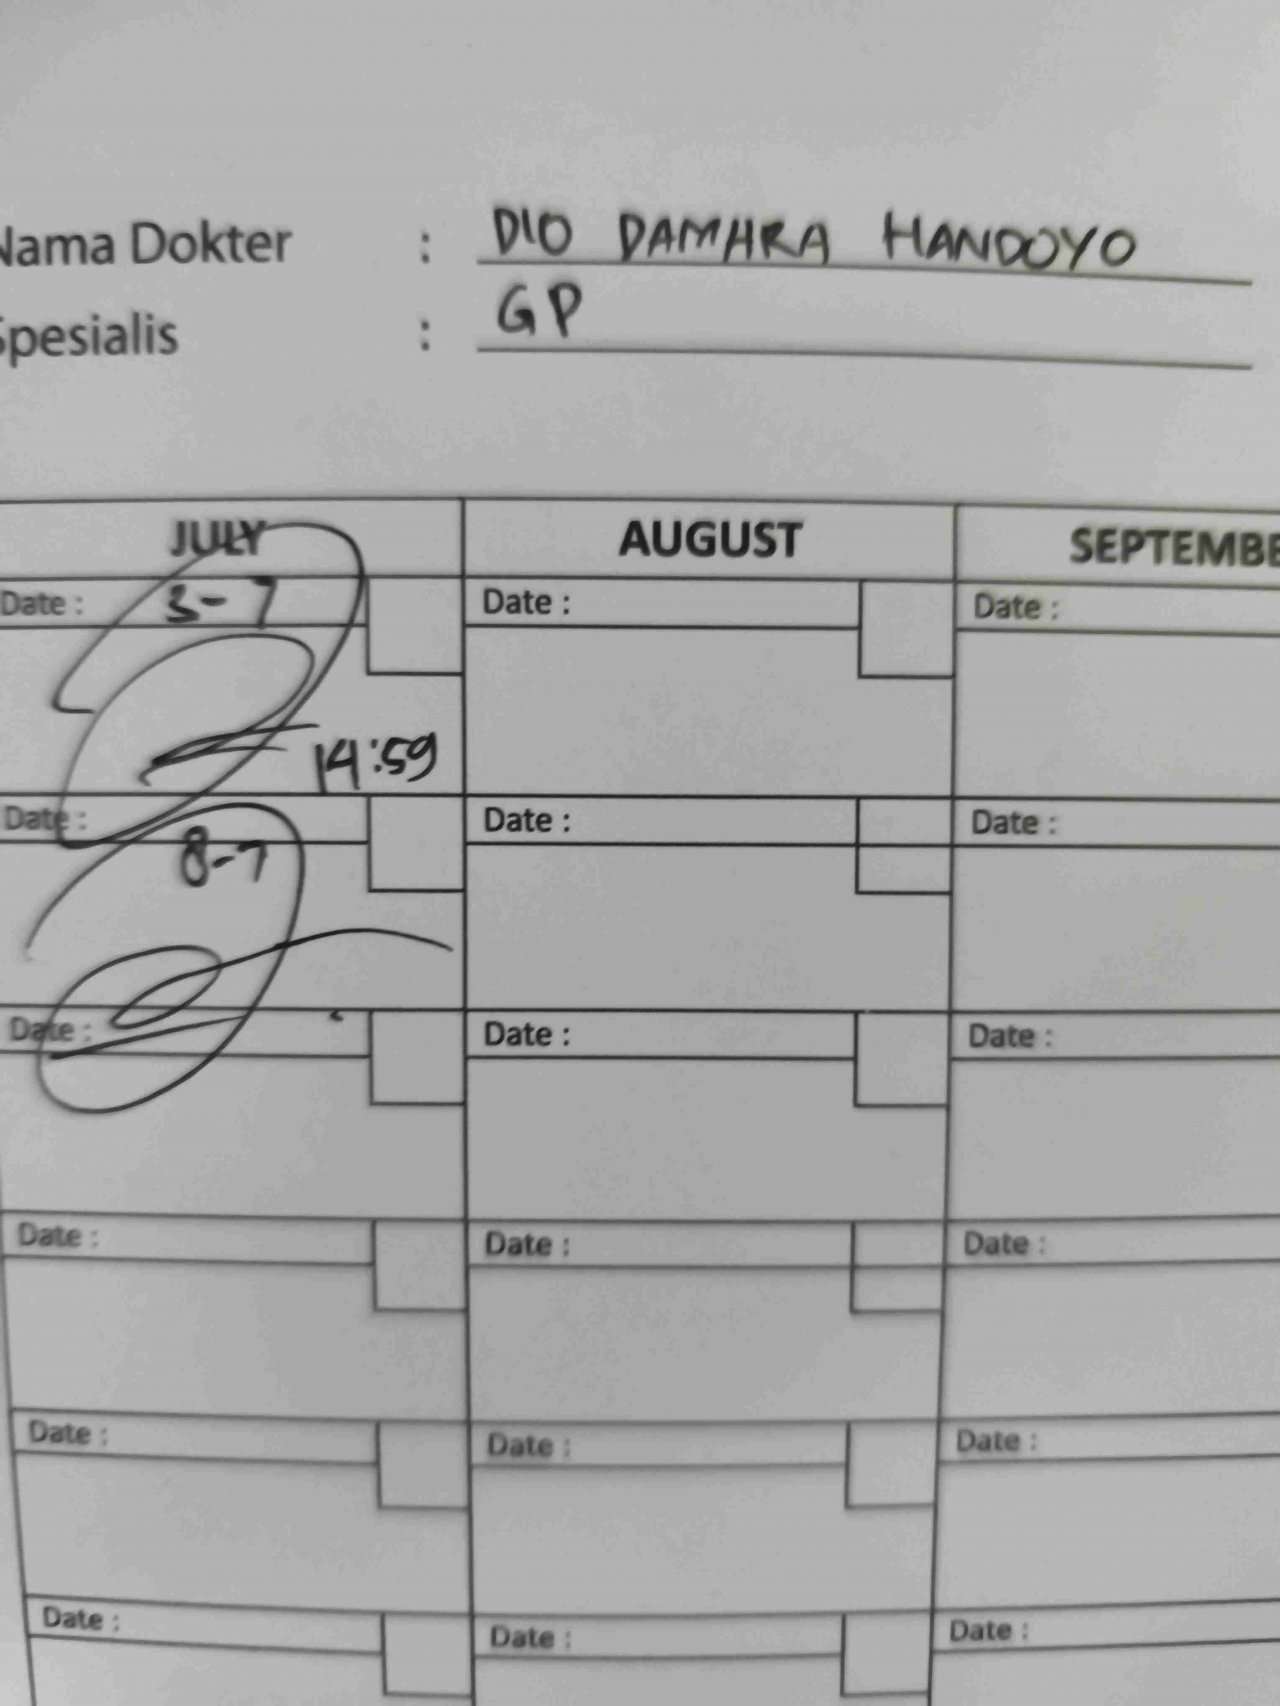 Nama Dokter : DIO DAMHRA HANDOYO
Spesialis : GP
JULY AUGUST SEPTEMBE
Date : 3-7 Date : Date :
14:59
Date : 8-7 Date : Date :
Date : Date : Date :
Date : Date : Date :
Date : Date : Date :
Date : Date : Date :